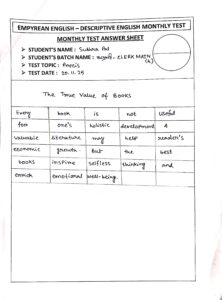 EMPYREAN ENGLISH – DESCRIPTIVE ENGLISH MONTHLY TEST
MONTHLY TEST ANSWER SHEET
➢ STUDENT'S NAME :
➢ STUDENT'S BATCH NAME : CLERK MAIN
➢ TEST TOPIC : Precis
➢ TEST DATE : 20.11.25
The True Value of Books
Every book is not useful
for one's holistic development. A
valuable literature may help reader's
economic growth. But the best
books inspire selfless thinking and
enrich emotional well-being.